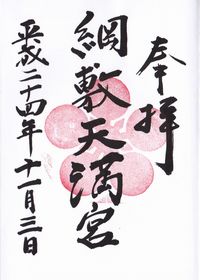 奉拝
綱敷天満宮
平成二十四年十一月三日